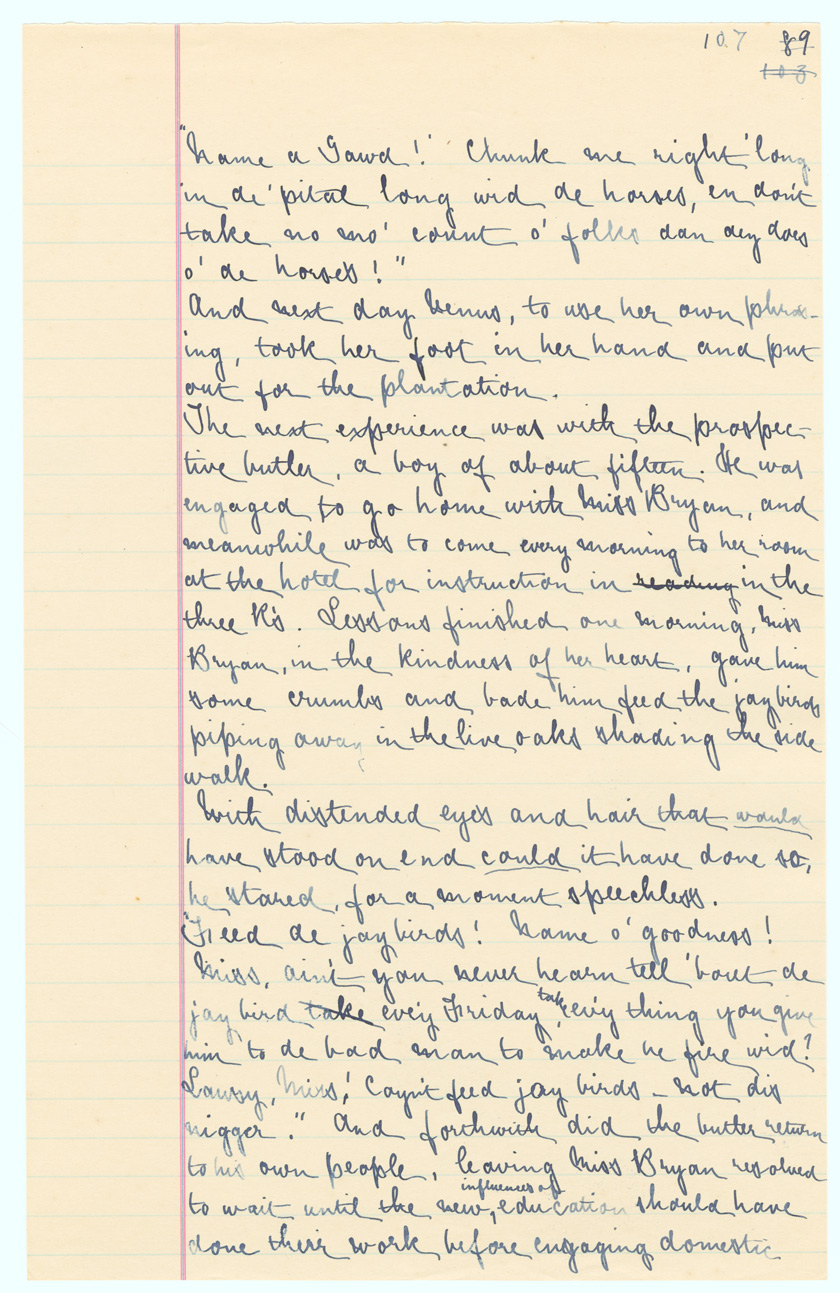 107 89
103
"Name a Gawd!" Chunk me right 'long
in de 'pital long wid de horses, en don't
take no mo' count o' folks dan dey does
o' de horses!"
And next day Venus, to use her own phras-
ing, took her foot in her hand and put
out for the plantation.
The next experience was with the prospec-
tive butler, a boy of about fifteen. He was
engaged to go home with Miss Bryan, and
meanwhile was to come every morning to her room
at the hotel for instruction in reading in the
three R's. Lessons finished one morning, Miss
Bryan, in the kindness of her heart, gave him
some crumbs and bade him feed the jaybirds
piping away in the live oaks shading the side
walk.
With distended eyes and hair that would
have stood on end could it have done so,
he stared, for a moment speechless.
"Feed de jaybirds! Name o' goodness!
Miss, ain't you never hearn tell 'bout de
jay bird take ev'y Friday take ev'y thing you give
him to de bad man to make he fire wid?
Lawsy, Miss! Cayn't feed jay birds - not dis
nigger." And forthwith did the butler return
to his own people, leaving Miss Bryan resolved
to wait until the new influences of education should have
done their work before engaging domestic